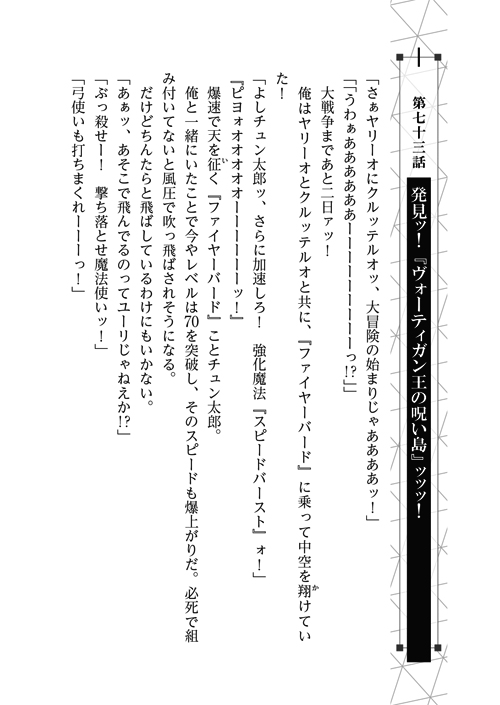 第七十三話
発見ッ！『ヴォーティガン王の呪い島』ッッッ！
「さぁヤリーオにクルッテルオッ、大冒険の始まりじゃああああッ！」
「「うわぁああああああーーーーーーーーっ!?」」
大戦争まであと二日ァッ！
俺はヤリーオとクルッテルオと共に、『ファイヤーバード』に乗って中空を翔かけてい
た！
「よしチュン太郎ッ、さらに加速しろ！　強化魔法『スピードバースト』ォ！」
『ピヨォオオオオオーーーーーーーッ！』
爆速で天を征いく『ファイヤーバード』ことチュン太郎。
俺と一緒にいたことで今やレベルは70を突破し、そのスピードも爆上がりだ。必死で組
み付いてないと風圧で吹っ飛ばされそうになる。
だけどちんたらと飛ばしているわけにもいかない。
「あぁッ、あそこで飛んでるのってユーリじゃねえか!?」
「ぶっ殺せー！　撃ち落とせ魔法使いッ！」
「弓使いも打ちまくれーーーっ！」